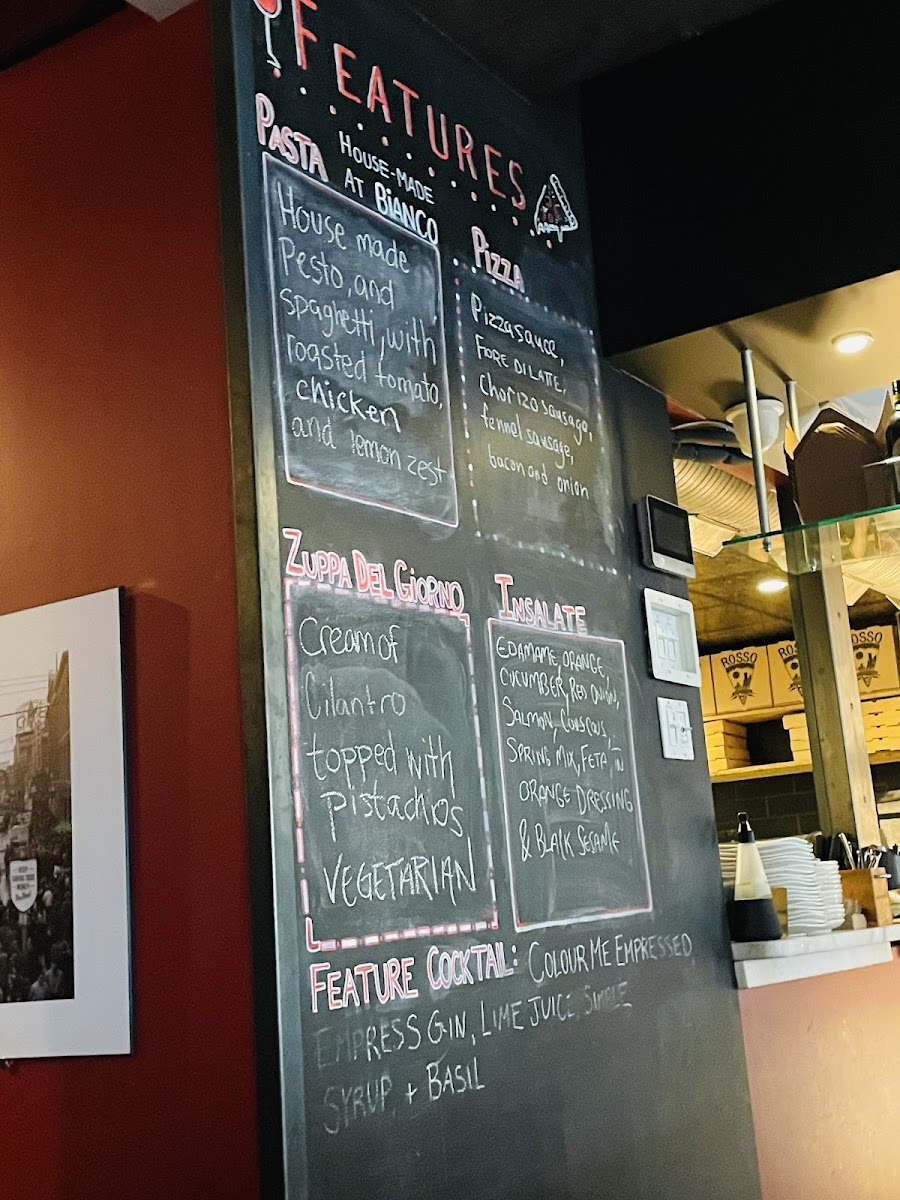 FEATURES
PASTA
HOUSE-MADE
AT BIANCO
House made
Pesto, and
spaghetti, with
roasted tomato,
chicken
and lemon zest
PIZZA
Pizza sauce,
FIORE DI LATTE,
chorizo sausage,
fennel sausage,
bacon and onion
ZUPPA DEL GIORNO
Cream of
Cilantro
topped with
Pistachios
VEGETARIAN
INSALATE
EDAMAME, ORANGE,
CUCUMBER, RED ONION,
SALMON, COUSCOUS,
SPRING MIX, FETA, IN
ORANGE DRESSING
& BLACK SESAME
FEATURE COCKTAIL: COLOUR ME EMPRESSED
EMPRESS GIN, LIME JUICE, SIMPLE
SYRUP + BASIL
ROSSO
ROSSO
ROSSO